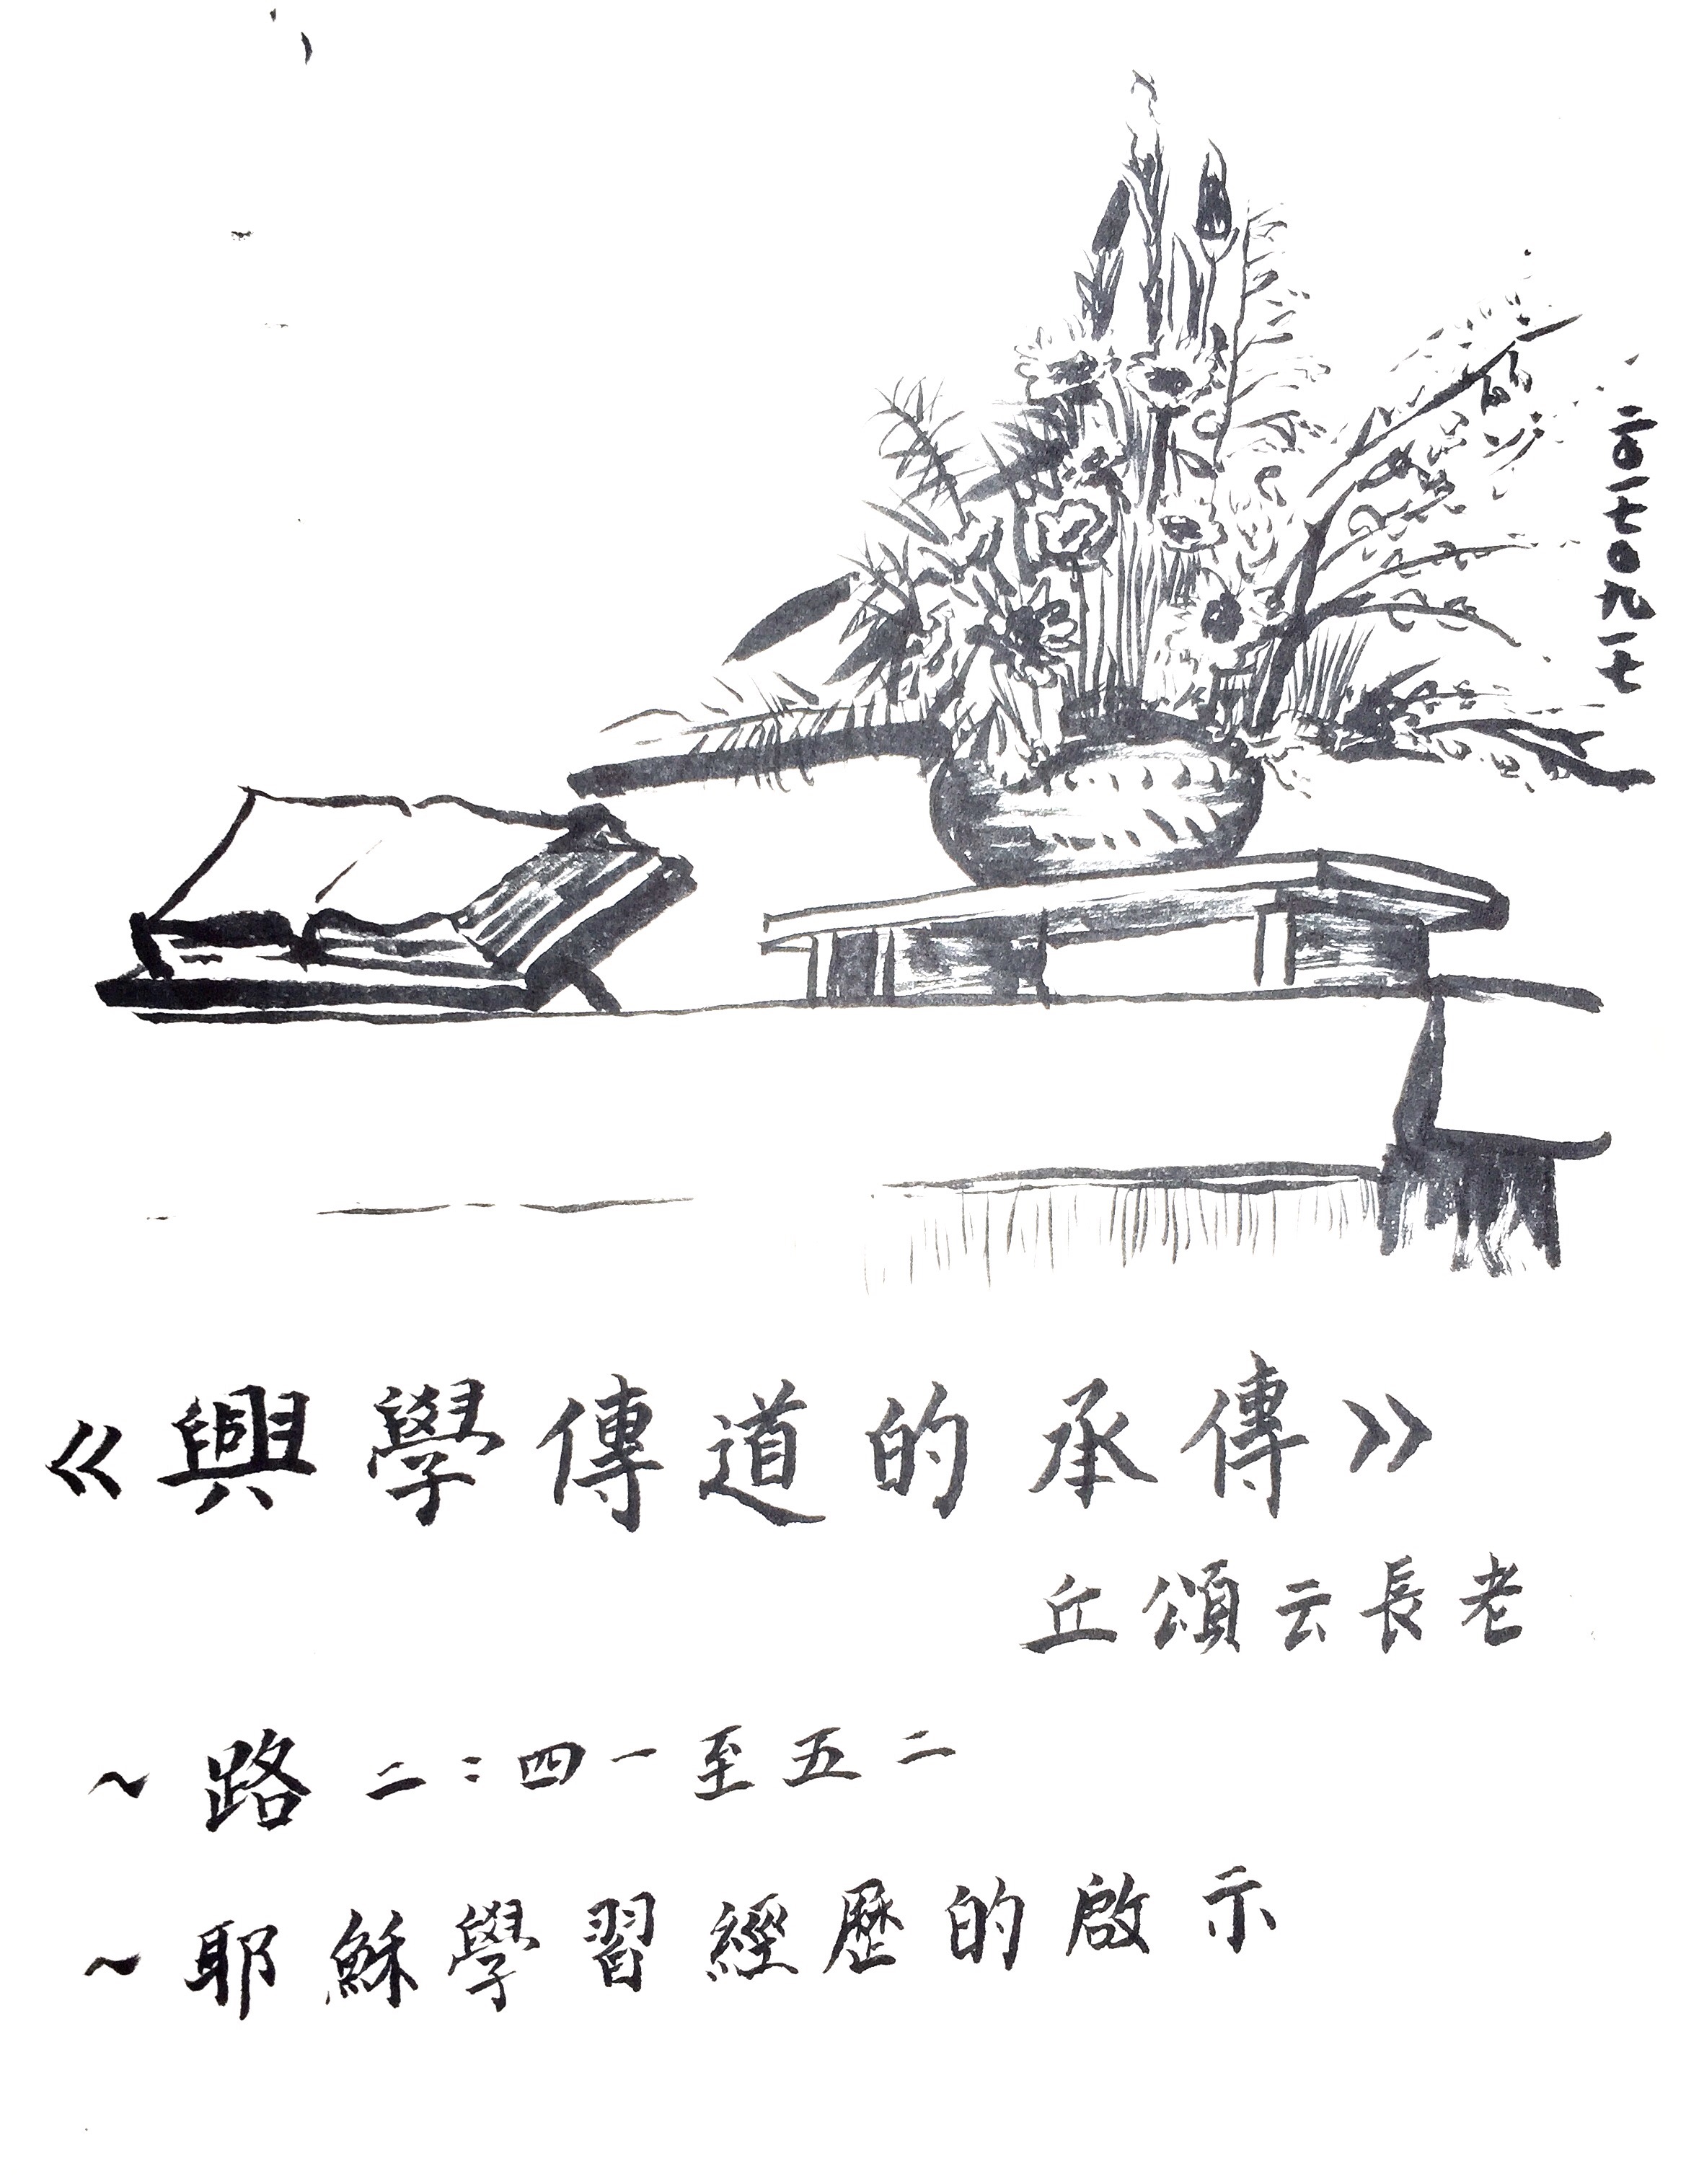 二〇一七〇九一七
《興學傳道的承傳》
丘頌云長老
~路二:四一至五二
~耶穌學習經歷的啟示